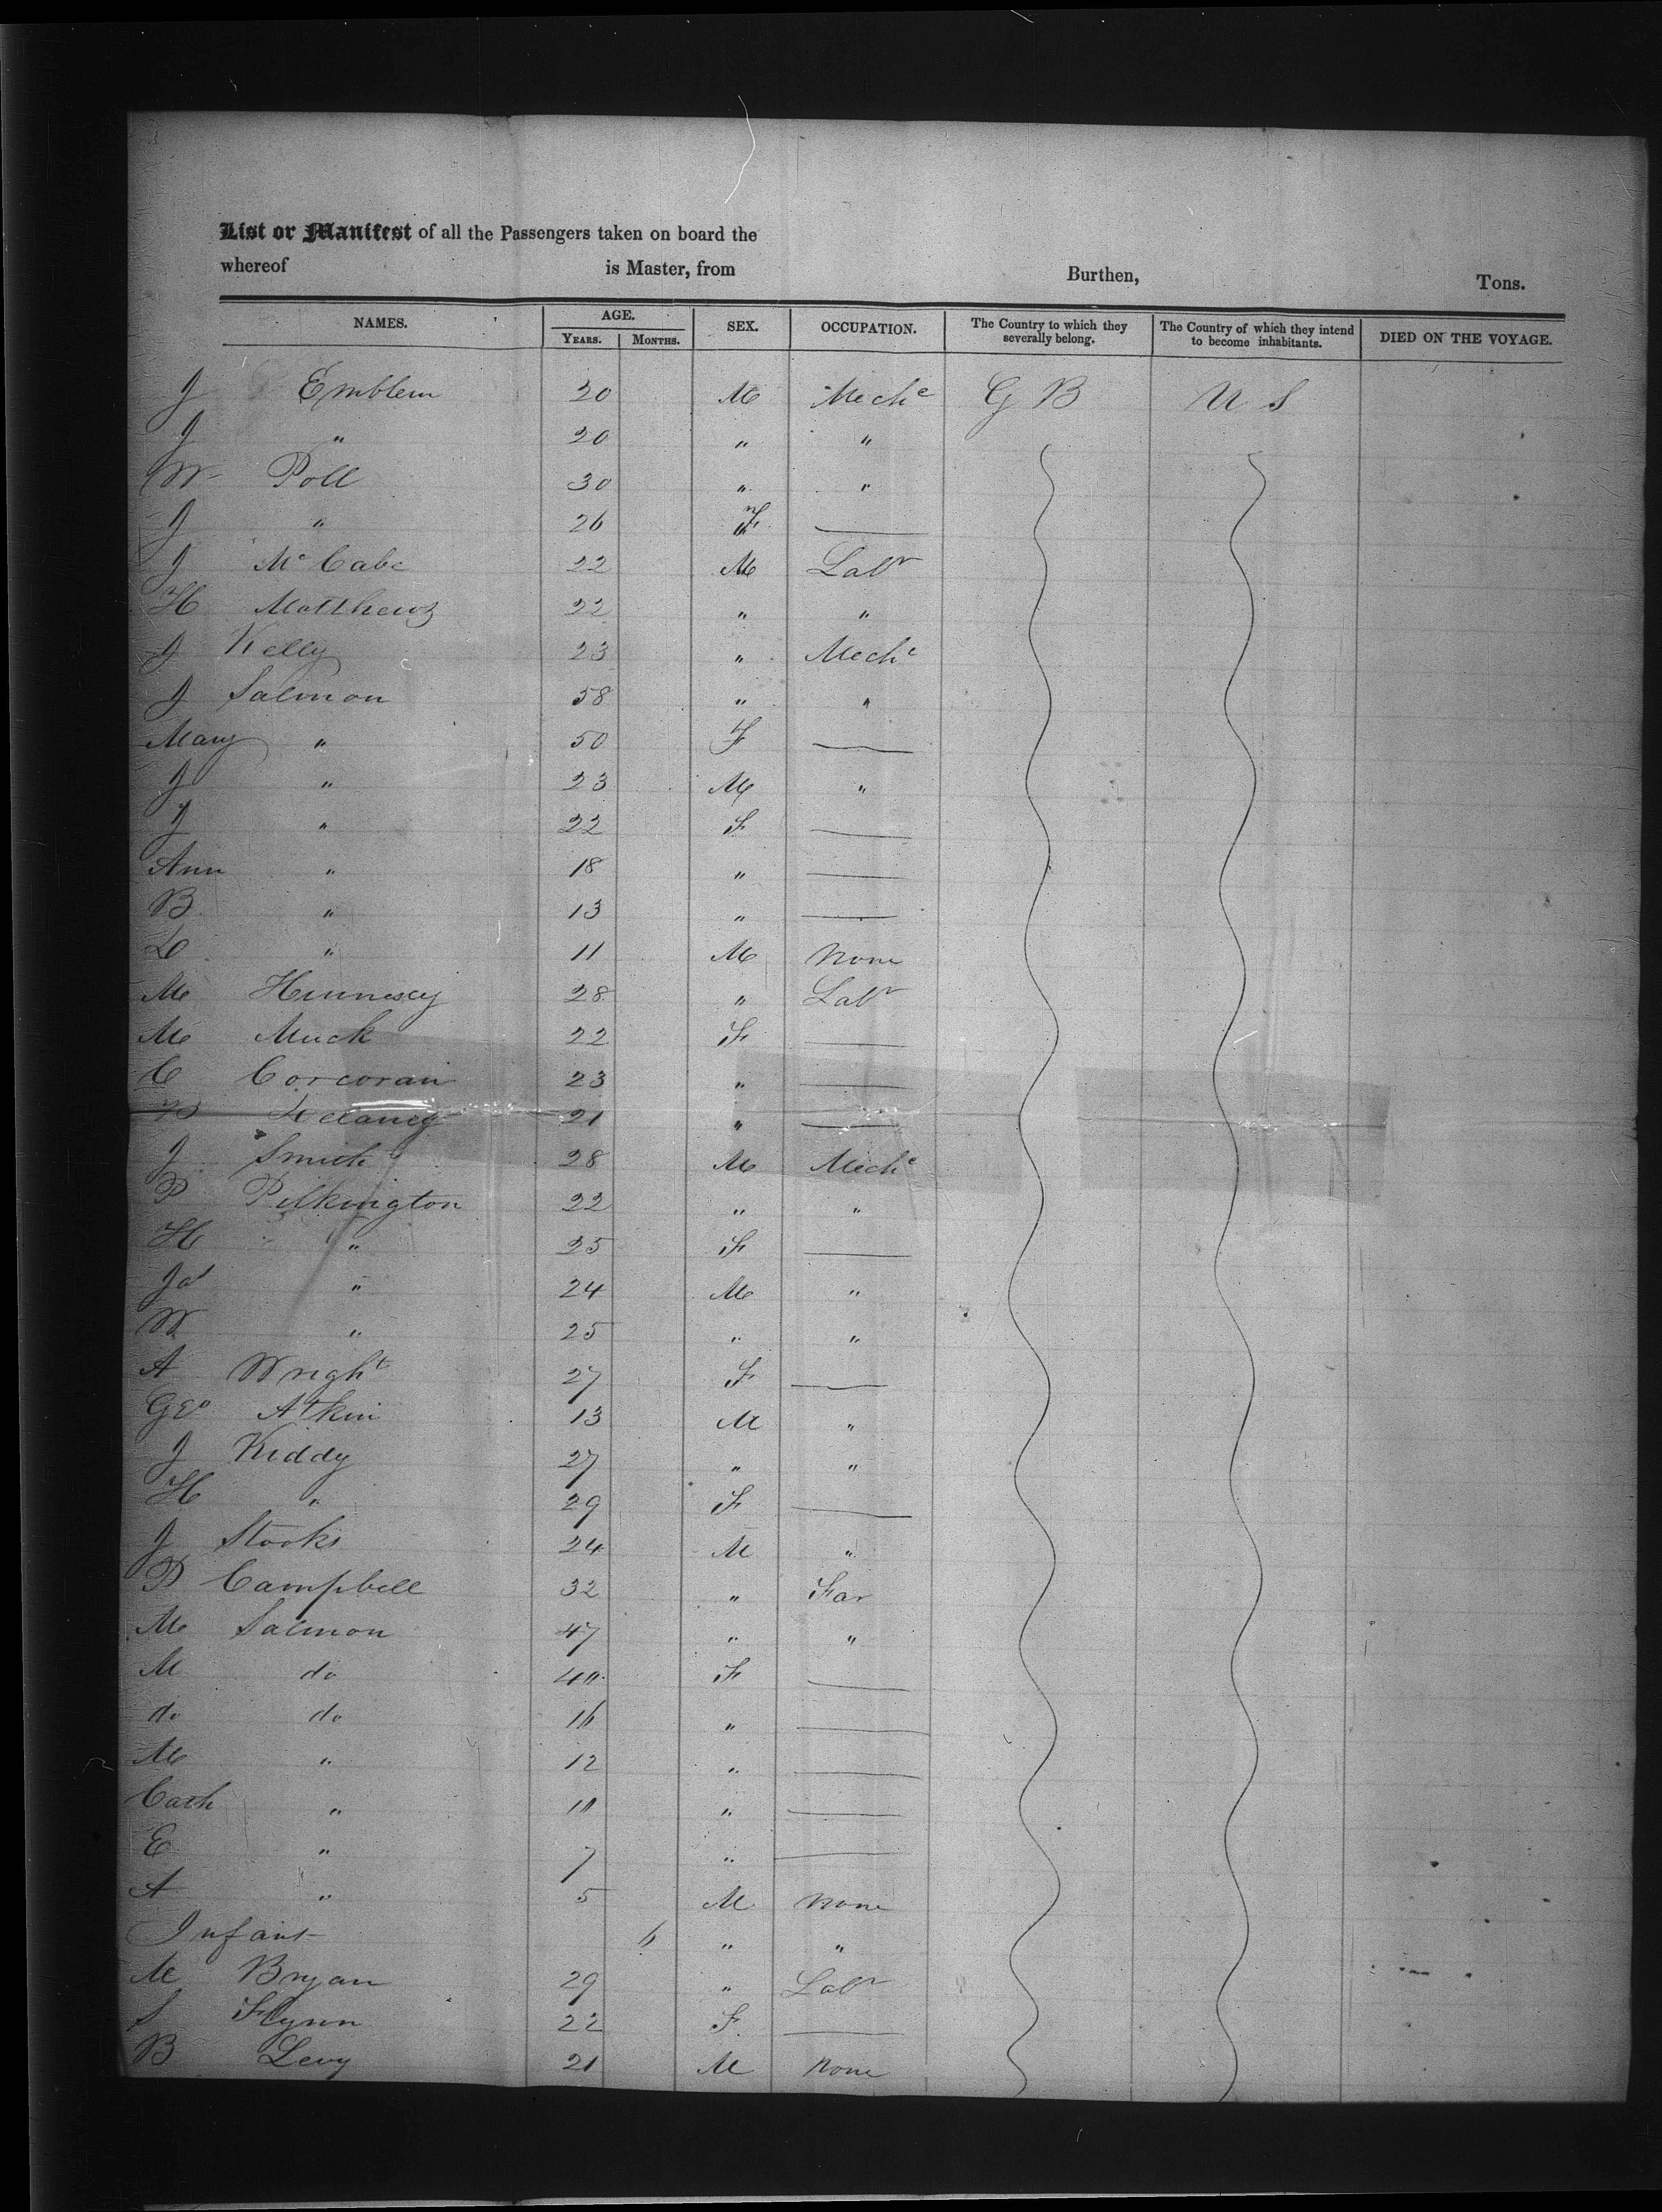 List or Manifest of all the Passengers taken on board the
whereof is Master, from Burthen, Tons.
NAMES. AGE. SEX. OCCUPATION. The Country to which they severally belong. The Country of which they intend to become inhabitants. DIED ON THE VOYAGE.
YEARS. MONTHS.
J Emblem 20 M Mechc G B U S
J " 20 " "
W Poll 30 " "
J " 26 F
J McCabe 22 M Labr
H Matthews 22 " "
J Kelly 23 " Mechc
J Salmon 58 " "
Mary " 50 F
J " 23 M "
J " 22 F
Ann " 18 "
B " 13 "
D " 11 M None
M Hennesey 28 " Labr
M Muck 22 F
C Corcoran 23 "
Delaney 21 "
J Smith 28 M Mechc
P Pilkington 22 " "
H " 25 F
Jas " 24 M "
W " 25 " "
A Wright 27 F
Geo Atkin 13 M "
J Kiddy 27 " "
H " 29 F
J Stooks 24 M "
P Campbell 32 " Far
M Salmon 47 " "
M do 40 F
do do 16 "
M " 12 "
Cath " 10 "
E " 7 "
A " 5 M none
Infant 6 " "
M Bryan 29 " Labr
S Flynn 22 F
B Levy 21 M none